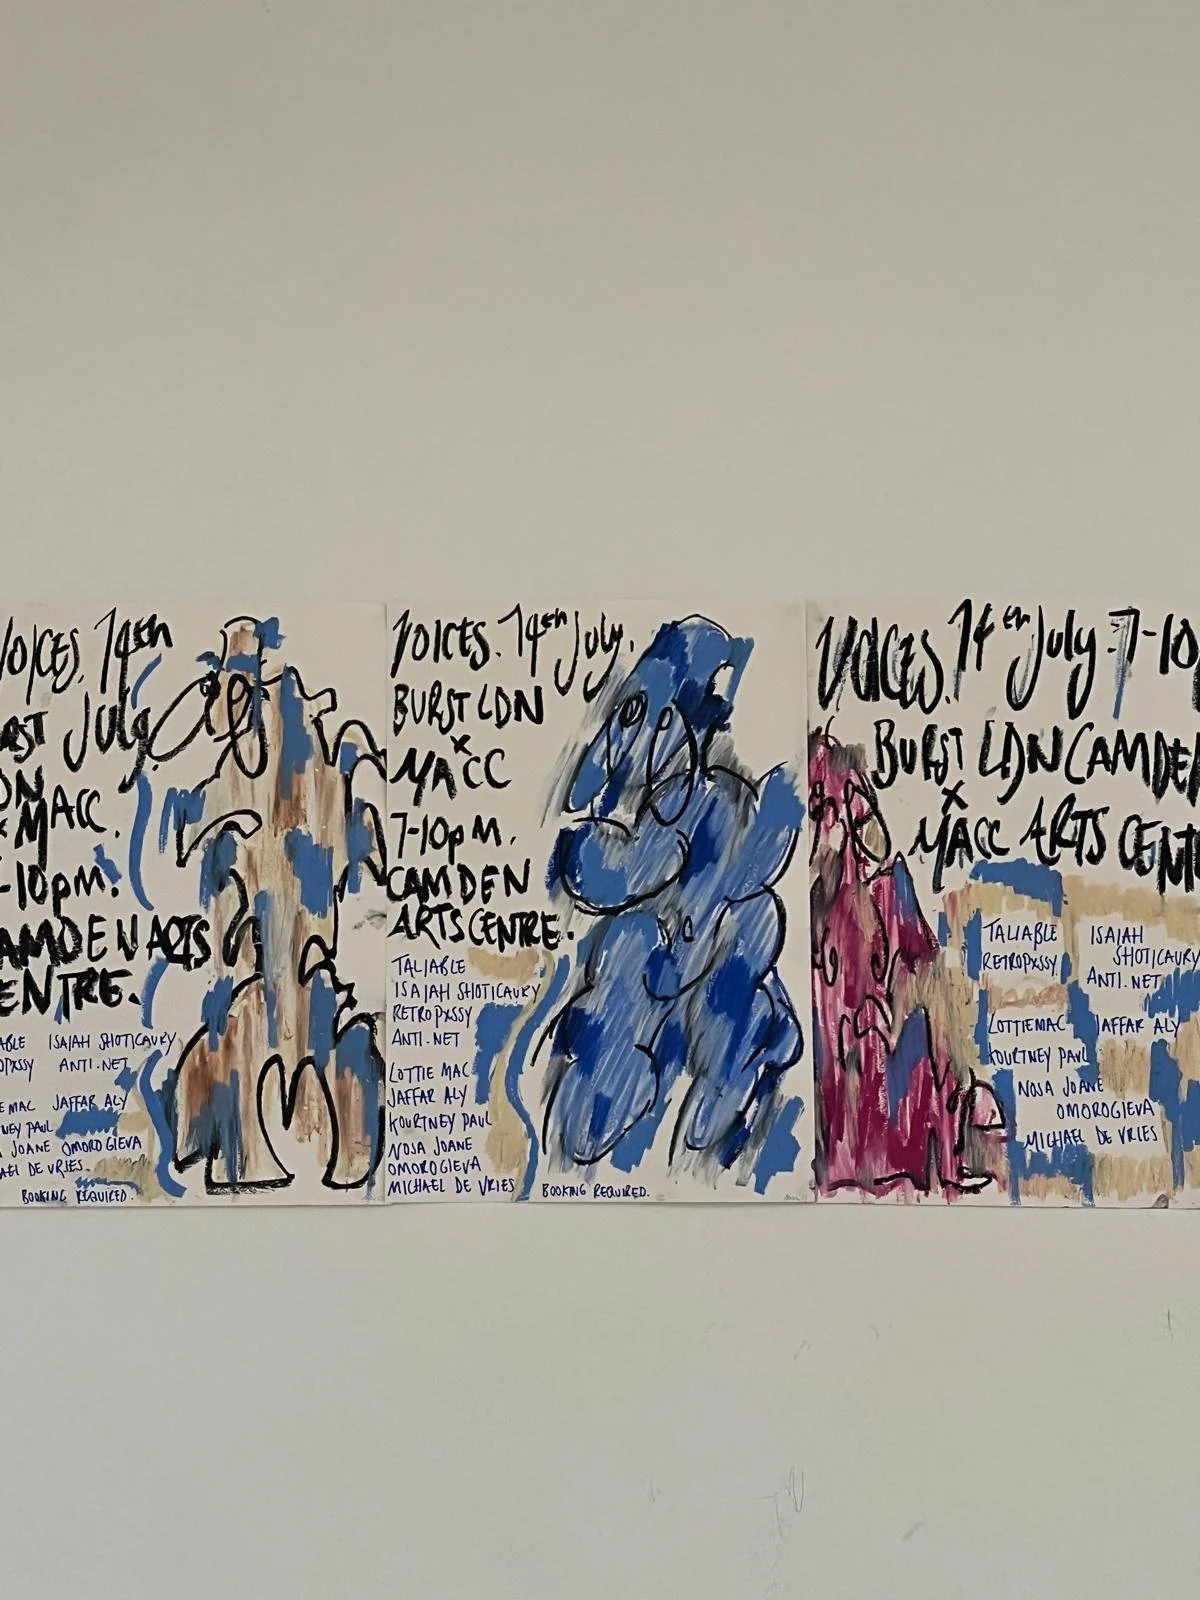 VOICES. 14th
July.
MACC.
-10pM.
ARTS
ENTRE.
ISAIAH SHOTICAURY
ANTI.NET
MAC JAFFAR ALY
PAUL
JOANE OMOROGIEVA
DE VRIES.
BOOKING REQUIRED.
VOICES. 14th July.
BURST LDN
x
MACC
7-10pM.
CAMDEN
ARTS CENTRE.
TALIABLE
ISAIAH SHOTICAURY
RETROPXSSY
ANTI.NET
LOTTIE MAC
JAFFAR ALY
KOURTNEY PAUL
NOSA JOANE
OMOROGIEVA
MICHAEL DE VRIES
BOOKING REQUIRED.
VOICES. 14th July. 7-10
BURST LDN CAMDEN
x
MACC ARTS CENT
TALIABLE ISAIAH
RETROPXSSY. SHOTICAURY
ANTI.NET
LOTTIEMAC JAFFAR ALY
KOURTNEY PAUL
NOSA JOANE
OMOROGIEVA
MICHAEL DE VRIES